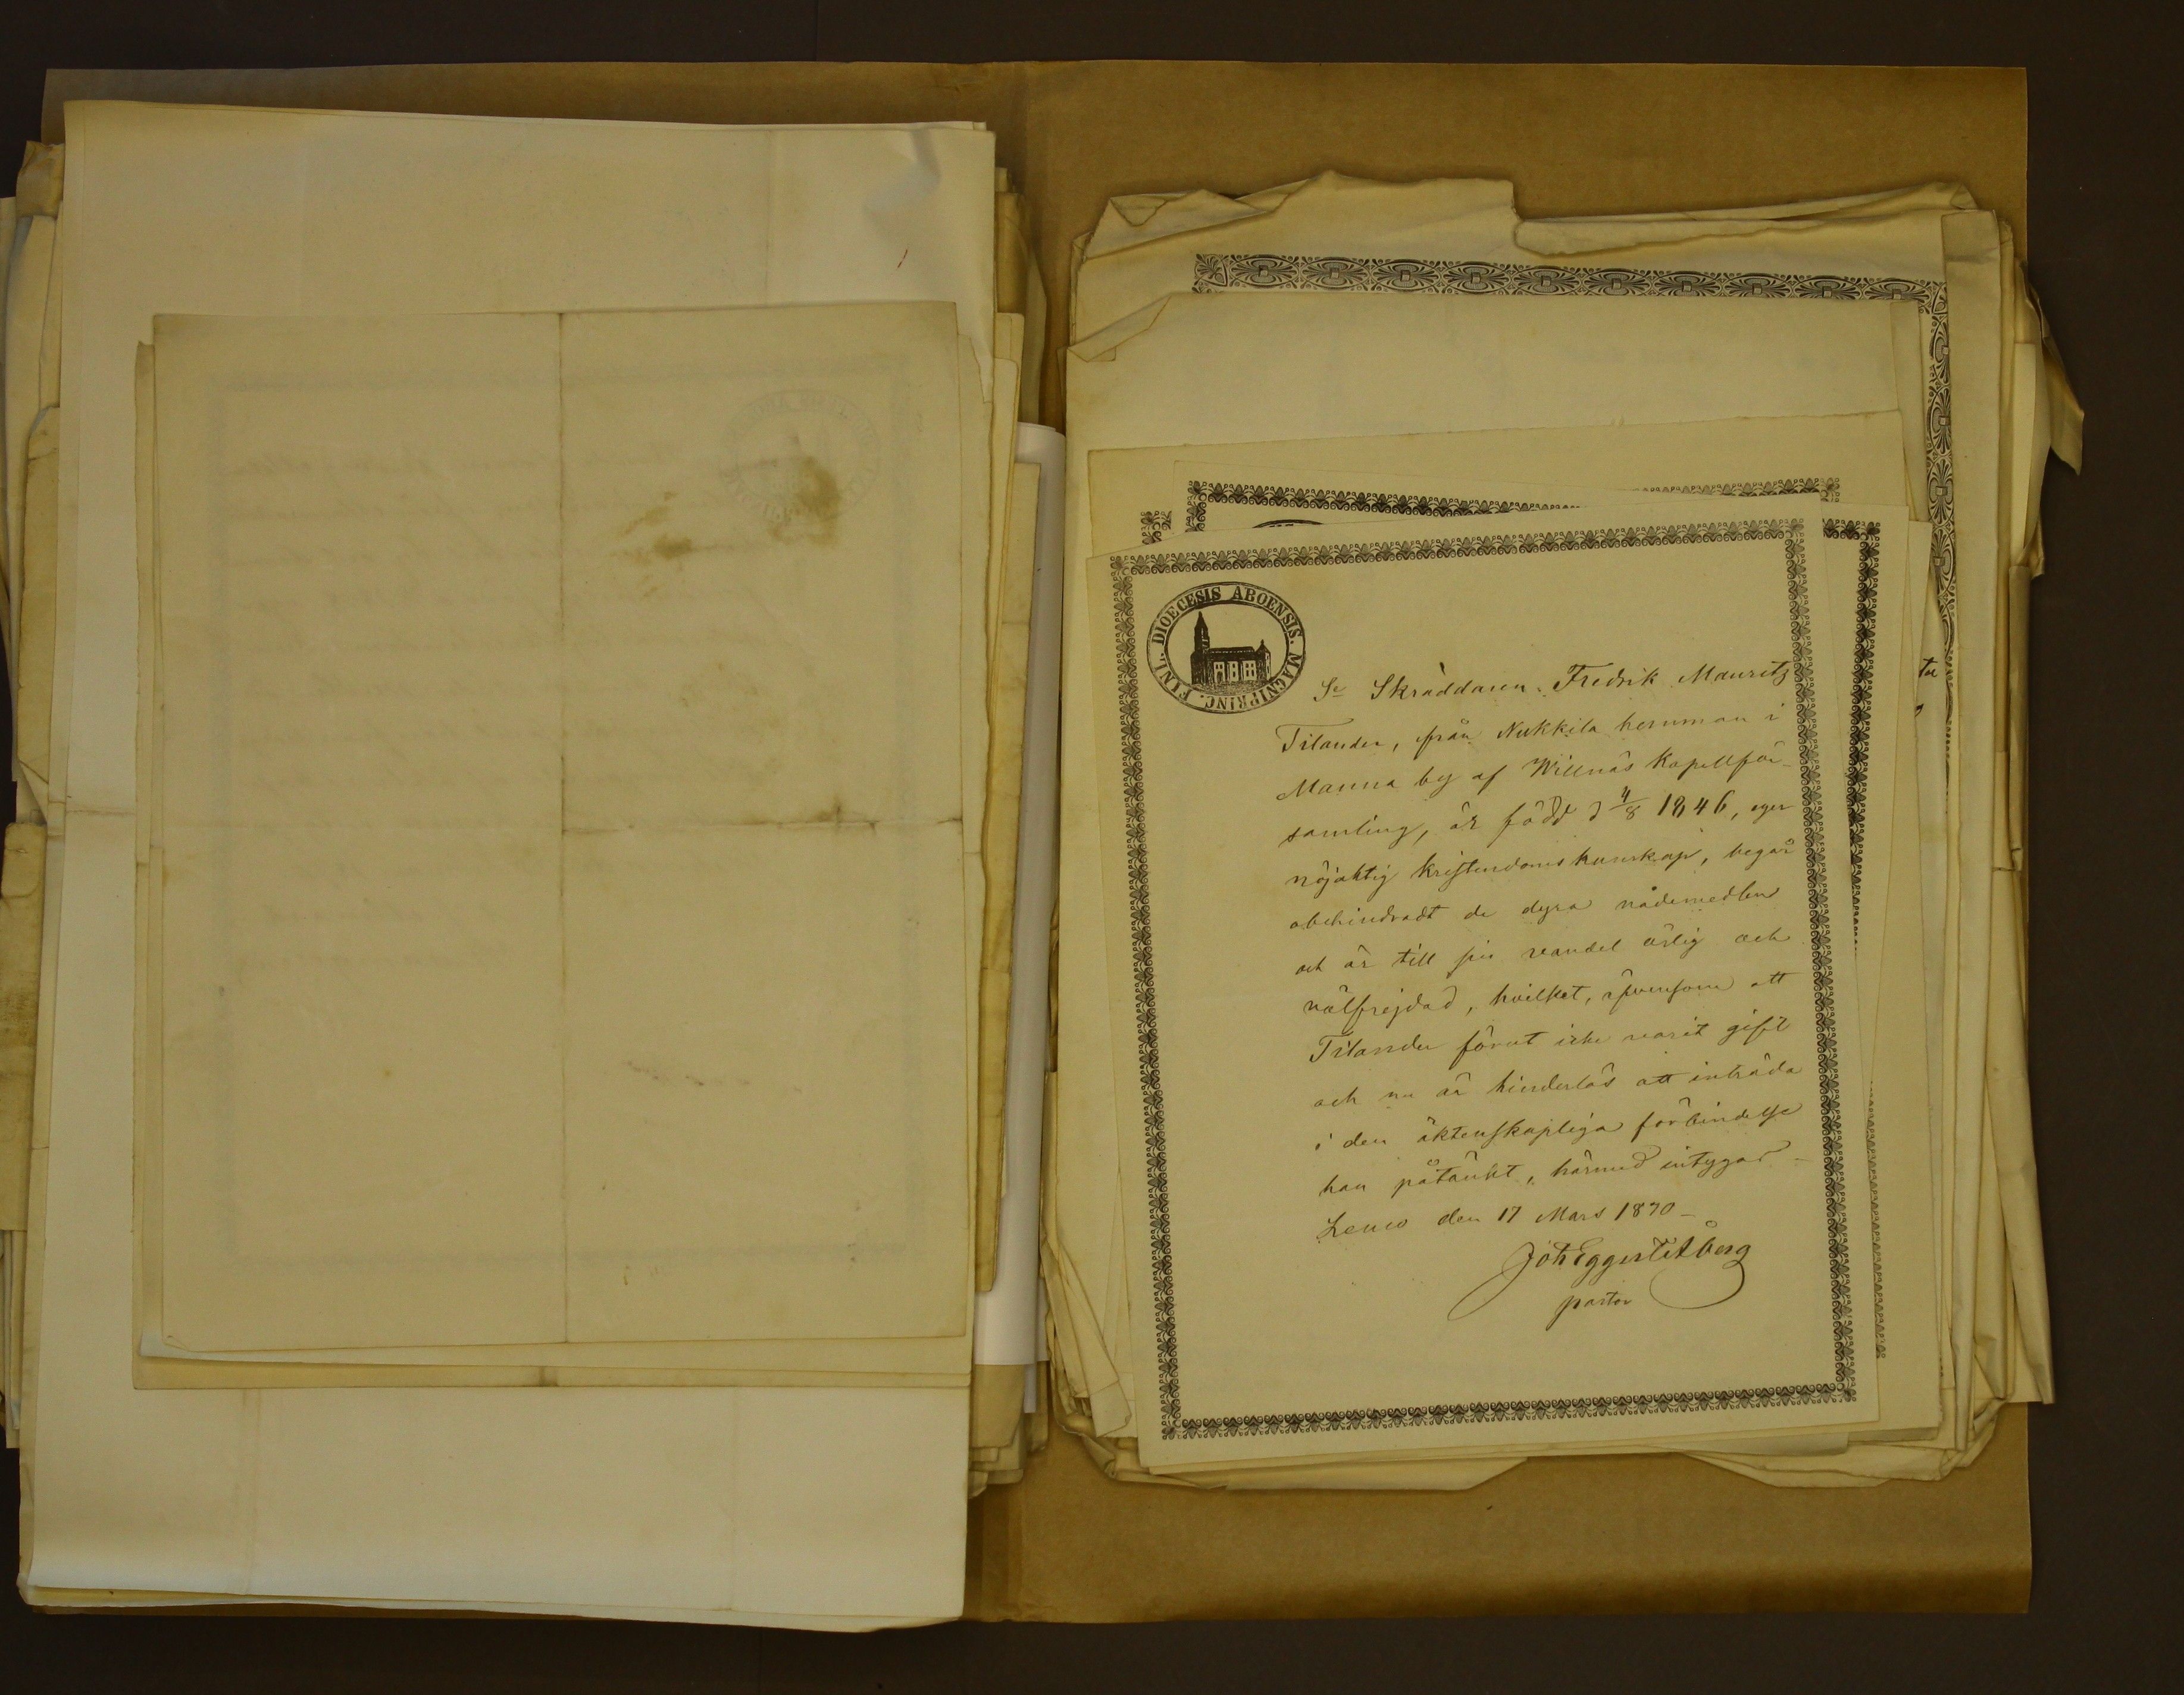 DIOECESIS ABOENSIS. MAGNIPRINC. FINL.
Sr Skräddaren Fredrik Mauritz
Tilander, från Nukkila hemman i
Manna by af Willnäs Kapellför-
samling, är född d 4/8 1846, eger
nöjaktig kristendomskunskap, begår
obehindradt de dyra nådemedlen
och är till sin vandel ärlig och
välfrejdad, hvilket, äfvensom att
Tilander förut icke varit gift
och nu är hinderlös att inträda
i den äktenskapliga förbindelse
han påtänkt, härmed intygas –
Lemo den 17 Mars 1870 –
Joh Eggert
pastor